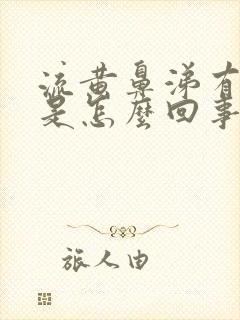 流黄鼻涕有
是怎麼回事
旅人由